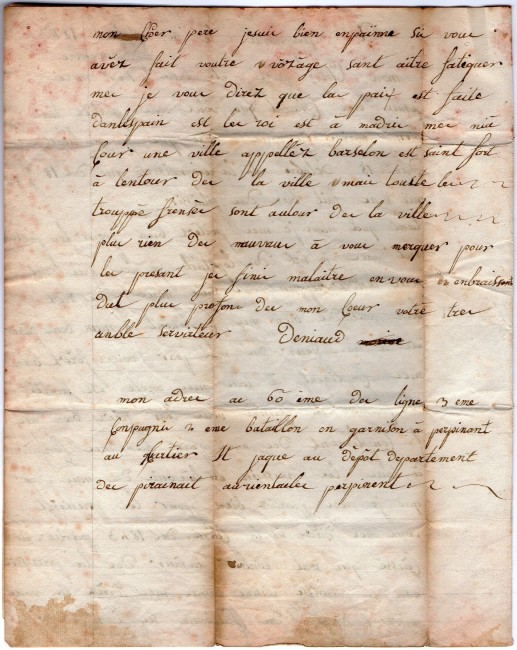 mon Cher pere jesuis bien enpainne si vous
avez fait voutre voyage sant aitre fatiguer
mes je vous direz que la paix est faite
danlespain est le roi est à madri mes niu
Cour une ville appellez barselon est saint fort
à lentour de la ville mais touste les
trouppe frensès sont autour de la ville
plus rien de mauvaux à vous merquer pour
le presant je fini malaitre en vous en enbraissant
dul plus profon de mon Coeur votre tres
anble serviteur Deniaud
mon adres au 60 ème de ligne 3 eme
Conpagnie 2 eme bataillon en garnison à perpinant
au Cartier St jaque au dèpôt departement
de pirainait aurientales perpinent